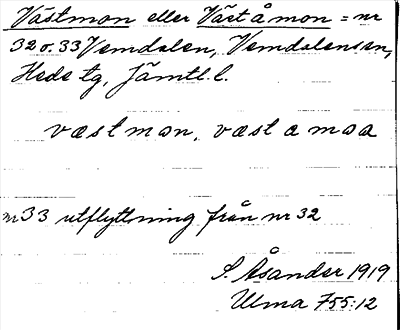 Västmon eller Väst å mon = nr
32 o. 33 Vemdalen, Vemdalens sn,
Hede tg, Jämtl. l.
væstmon, væst a moa
nr 33 utflyttning från nr 32
S. Åsander 1919
Ulma 755:12